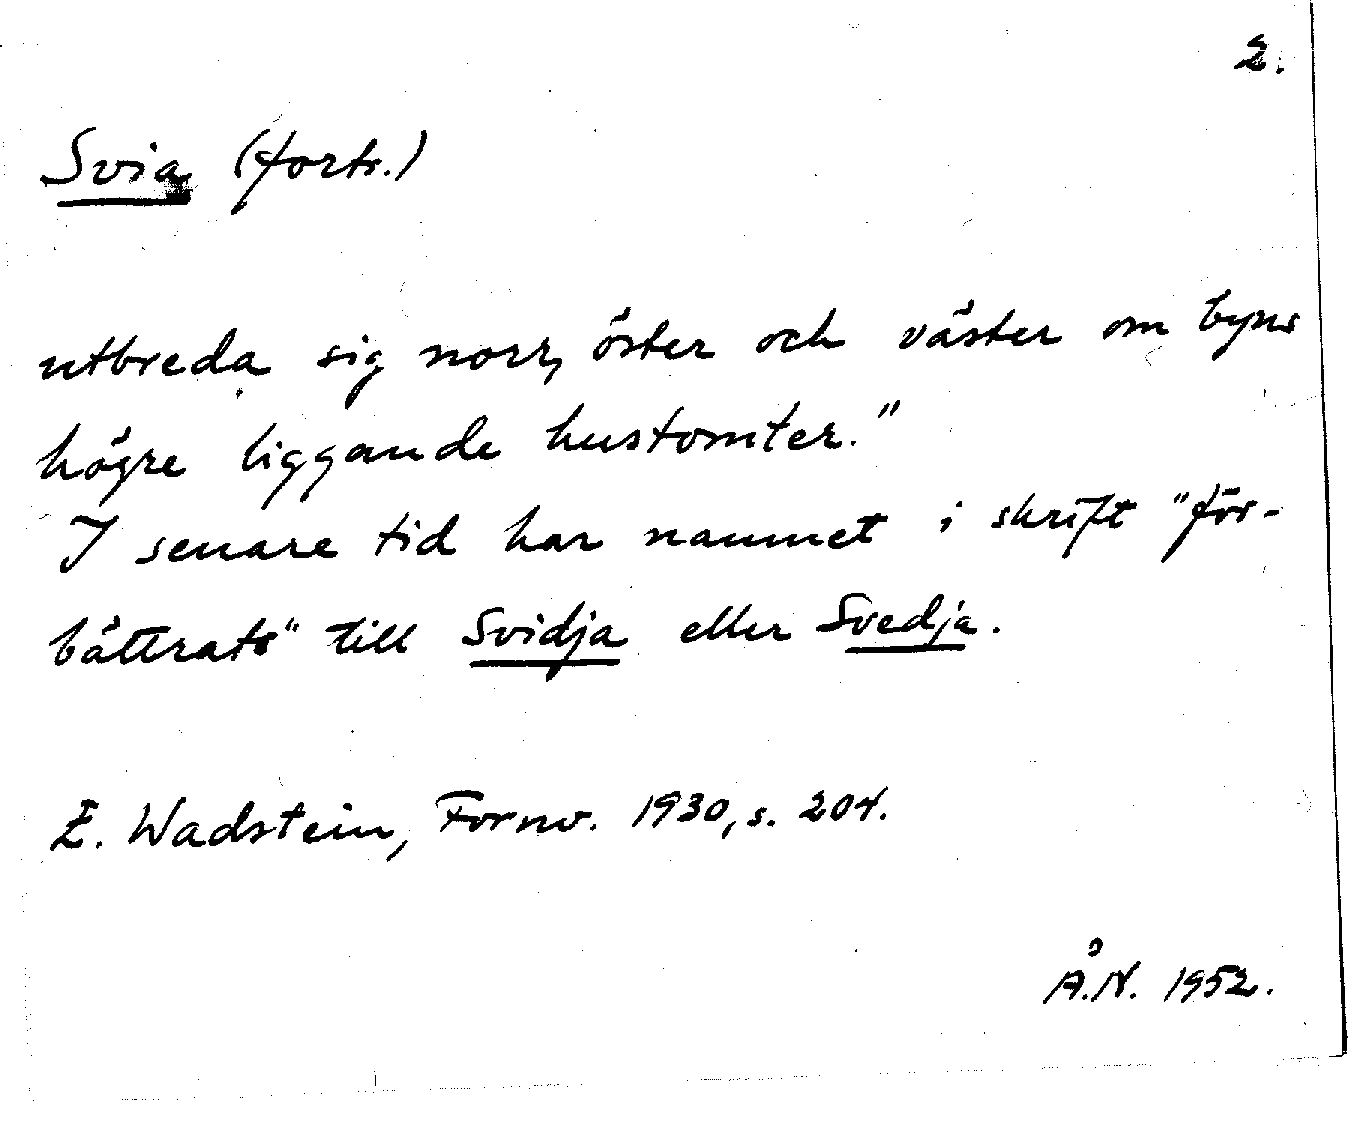 2.
Svia (forts.)
utbreda sig norr, öster och väster om byns
högre liggande hustomter."
I senare tid har namnet i skrift "för-
bättrats" till Svidja eller Svedja.
E. Wadstein, Fornv. 1930, s. 204.
Å.N. 1952.